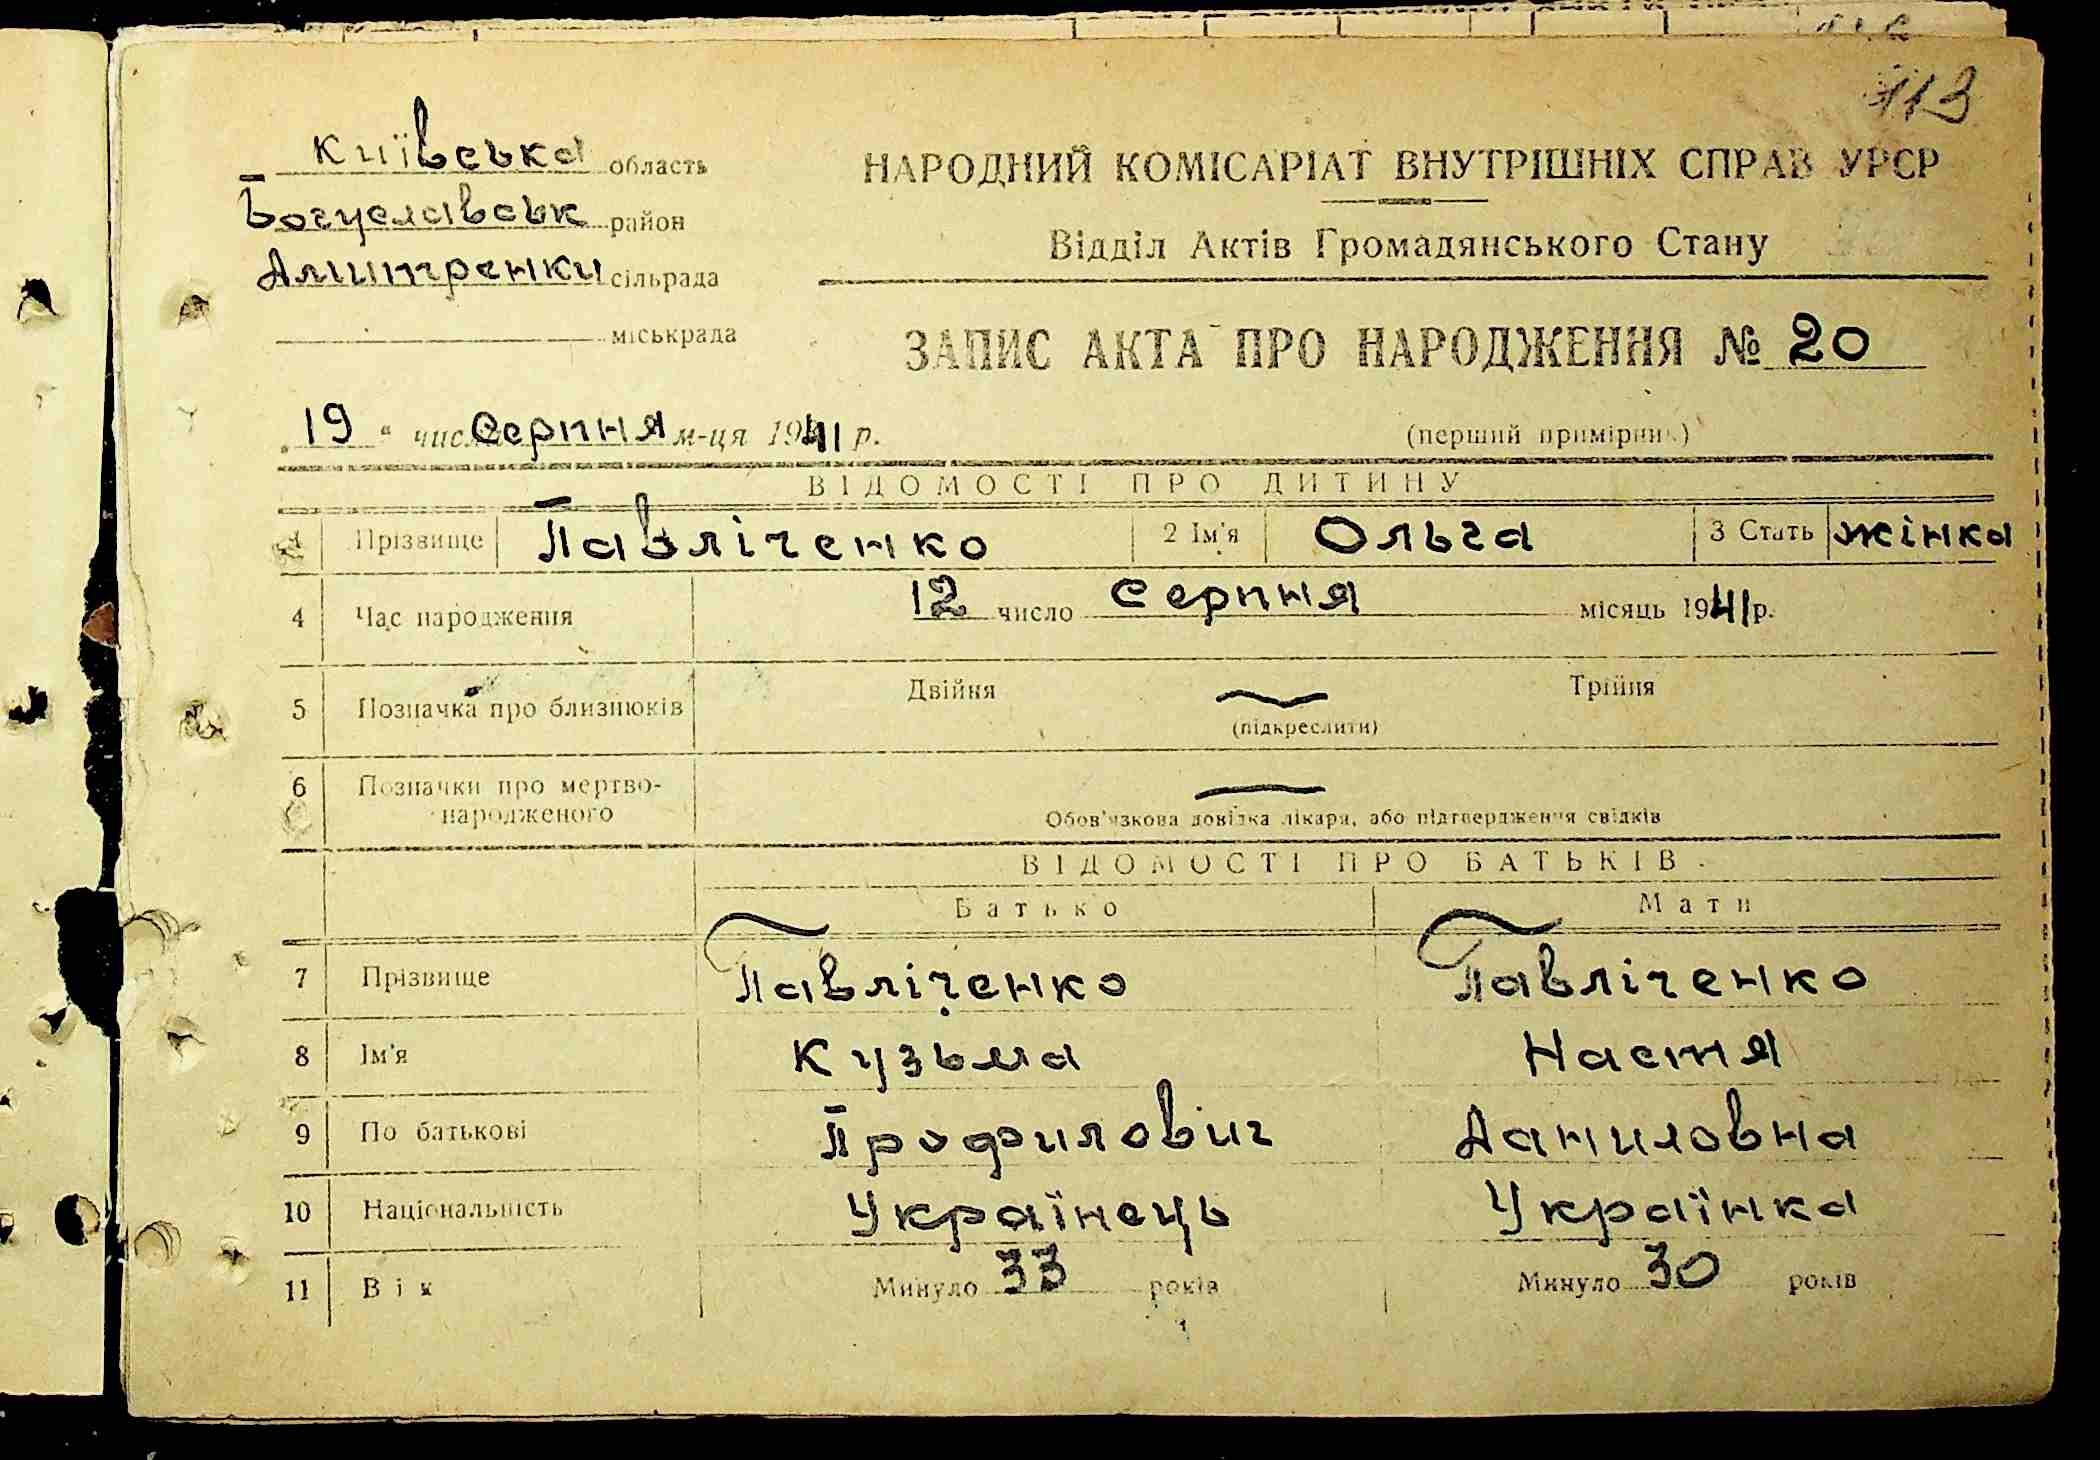 113
Київська область
Богуславськ район
Дмитренки сільрада
міськрада
НАРОДНИЙ КОМІСАРІАТ ВНУТРІШНІХ СПРАВ УРСР
Відділ Актів Громадянського Стану
ЗАПИС АКТА ПРО НАРОДЖЕННЯ № 20
19 " числа Серпня м-ця 1941 р.
(перший примірник)
ВІДОМОСТІ ПРО ДИТИНУ
1 Прізвище Павліченко 2 Ім'я Ольга 3 Стать жінка
4 Час народження 12 число Серпня місяць 1941 р.
5 Позначка про близнюків Двійня Трійня
(підкреслити)
6 Позначки про мертво-
народженого
Обов'язкова довідка лікаря, або підтвердження свідків
ВІДОМОСТІ ПРО БАТЬКІВ
Батько Мати
7 Прізвище Павліченко Павліченко
8 Ім'я Кузьма Настя
9 По батькові Профилович Даниловна
10 Національність Українець Українка
11 Вік Минуло 33 років Минуло 30 років